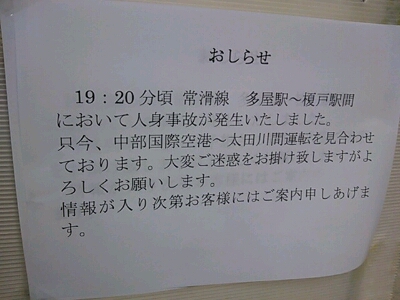 おしらせ
19：20分頃 常滑線 多屋駅～榎戸駅間
において人身事故が発生いたしました。
只今、中部国際空港～太田川間運転を見合わせ
ております。大変ご迷惑をお掛け致しますがよ
ろしくお願いします。
情報が入り次第お客様にはご案内申しあげま
す。